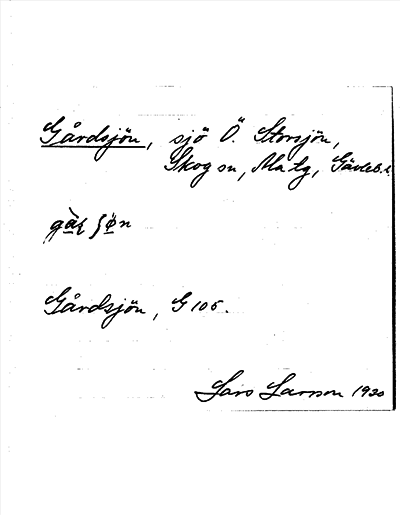 Gårdsjön, sjö Ö. Storsjön,
Skog sn, Ala tg, Gävleb. l.
Gårdsjön, G 105.
Lars Larsson 1920